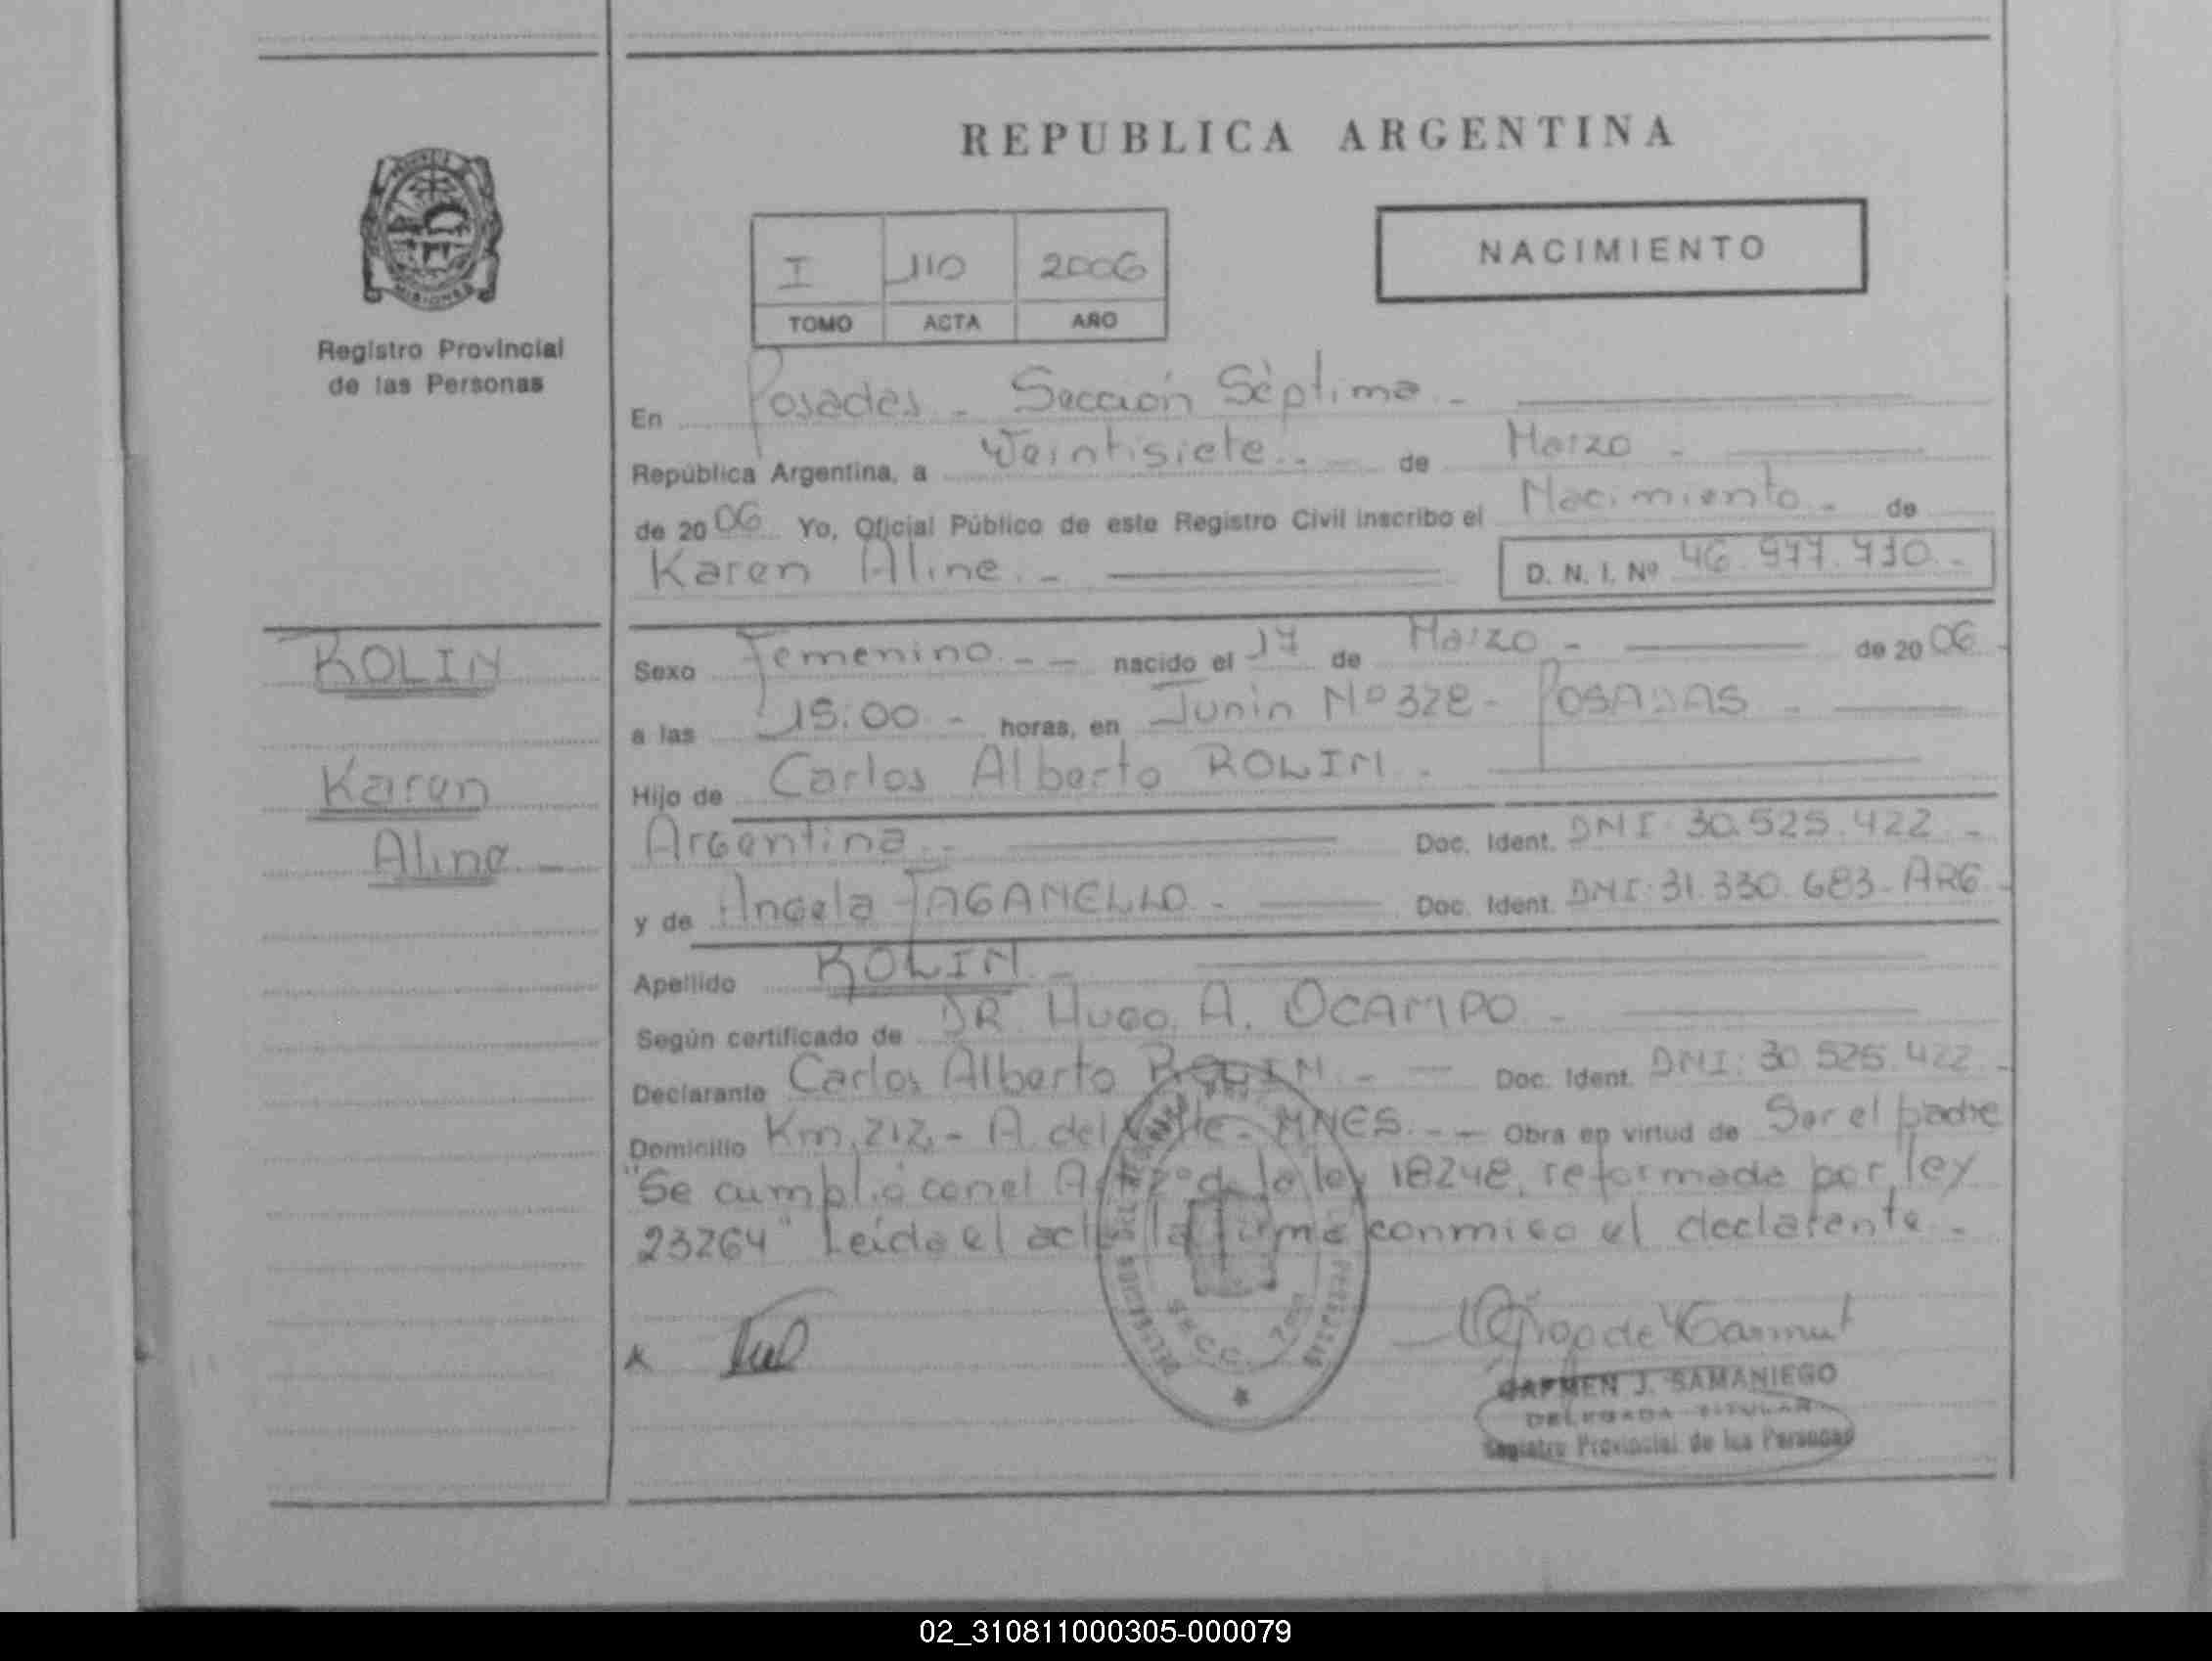 REPUBLICA ARGENTINA
MISIONES
Registro Provincial
de las Personas
NACIMIENTO
I 110 2006
TOMO ACTA AÑO
En Posadas - Sección Séptima -
República Argentina, a Veintisiete - de Marzo -
de 2006 Yo, Oficial Público de este Registro Civil inscribo el Nacimiento - de
Karen Aline - D. N. I. Nº 46.977.730 -
ROLIN
Karen
Aline -
Sexo Femenino - - nacido el 17 de Marzo - de 2006
a las 15:00 - horas, en Junin Nº 328 - POSADAS -
Hijo de Carlos Alberto ROLIN -
Argentina - Doc. Ident. DNI. 30.525.422 -
y de Angela TAGANELLO - Doc. Ident. DNI. 31.330.683 - ARG
Apellido ROLIN -
Según certificado de DR Hugo A. OCAMPO -
Declarante Carlos Alberto ROLIN - - Doc. Ident. DNI: 30.525.422 -
Domicilio Km. 212 - A. del Valle - MNES - - Obra en virtud de Ser el padre
"Se cumplió con el Art 2º de la ley 18248, reformada por ley
23264" Leída el acta la firma conmigo el declarante -
SECC. 7ma
CARMEN J. SAMANIEGO
DELEGADA TITULAR
Registro Provincial de las Personas
02_310811000305-000079